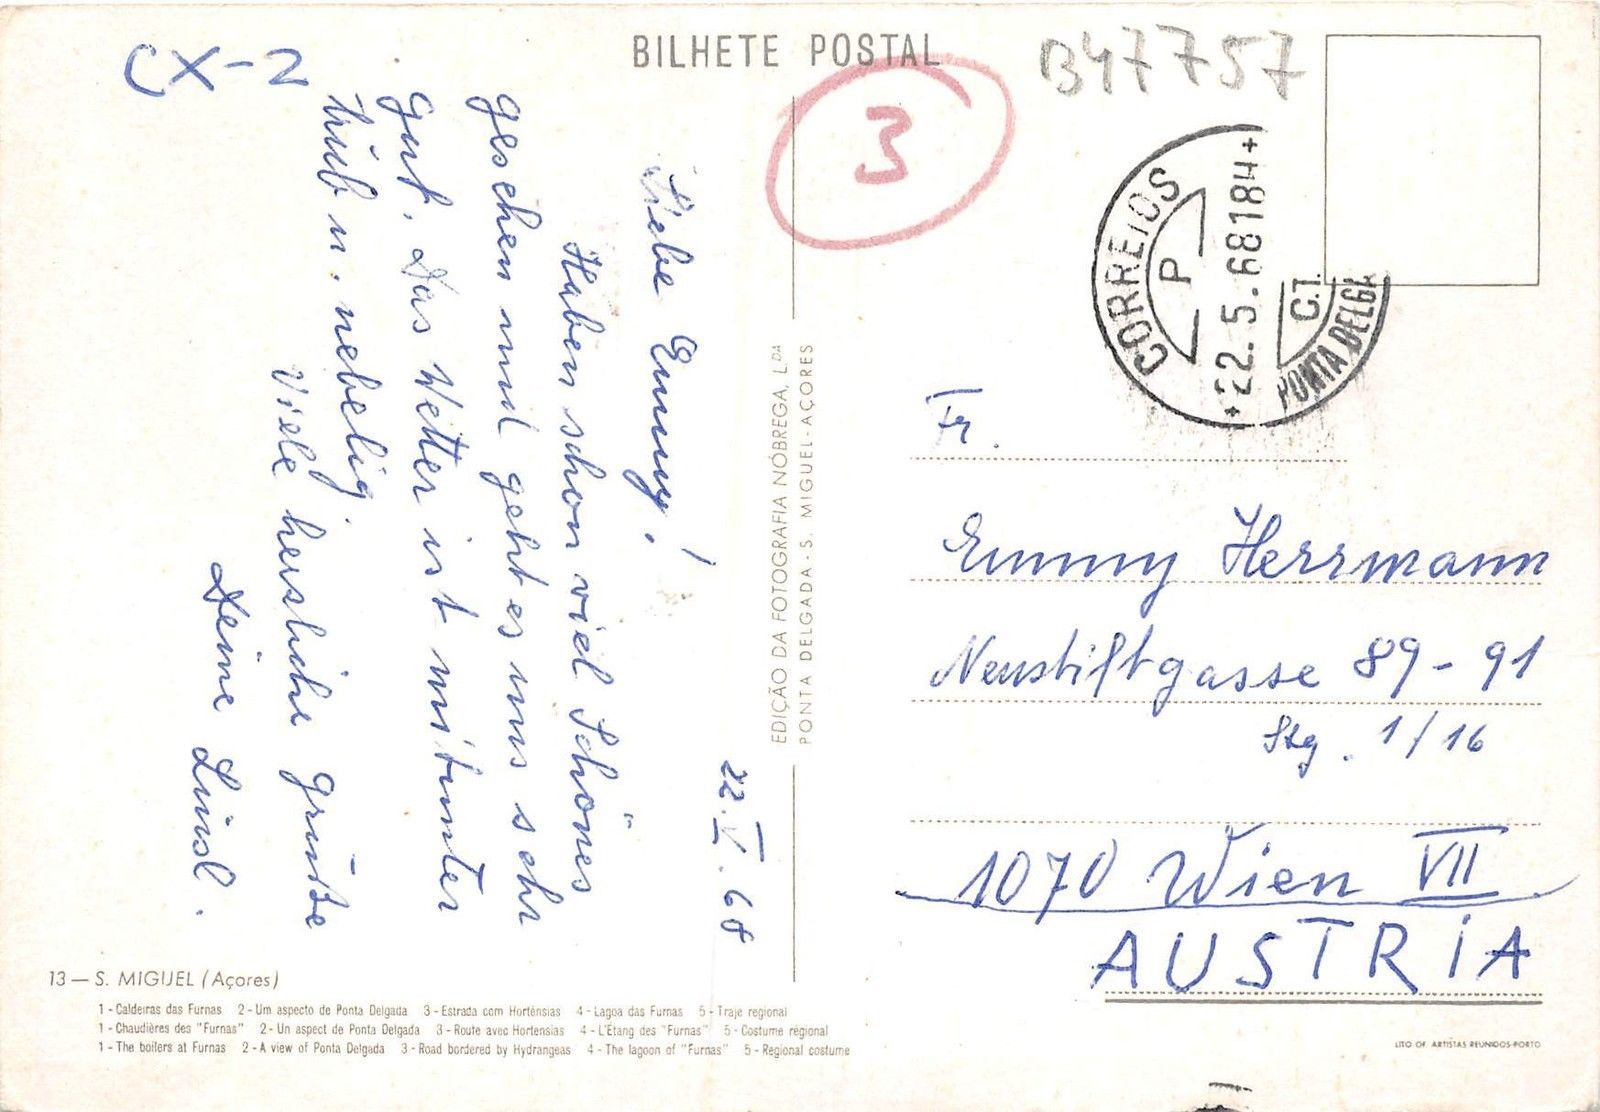 BILHETE POSTAL
CX-2
B47757
3
CORREIOS
P
22.5.68184
C.T.
PONTA DELGA
22.V.68
Liebe Emmy!
Haben schon viel Schönes
gesehen und geht es uns sehr
gut. Das Wetter ist mitunter
trüb u. nebelig.
Viele herzliche Grüße
Deine Luisl.
EDIÇÃO DA FOTOGRAFIA NÓBREGA, LDA
PONTA DELGADA - S. MIGUEL - AÇORES
Fr.
Emmy Herrmann
Neustiftgasse 89-91
Stg. 1/16
1070 Wien VII
AUSTRIA
13 — S. MIGUEL (Açores)
1 - Caldeiras das Furnas 2 - Um aspecto de Ponta Delgada 3 - Estrada com Hortênsias 4 - Lagoa das Furnas 5 - Traje regional
1 - Chaudières des "Furnas" 2 - Un aspect de Ponta Delgada 3 - Route avec Hortensias 4 - L'Étang des "Furnas" 5 - Costume régional
1 - The boilers at Furnas 2 - A view of Ponta Delgada 3 - Road bordered by Hydrangeas 4 - The lagoon of "Furnas" 5 - Regional costume
LITO OF. ARTISTAS REUNIDOS-PORTO